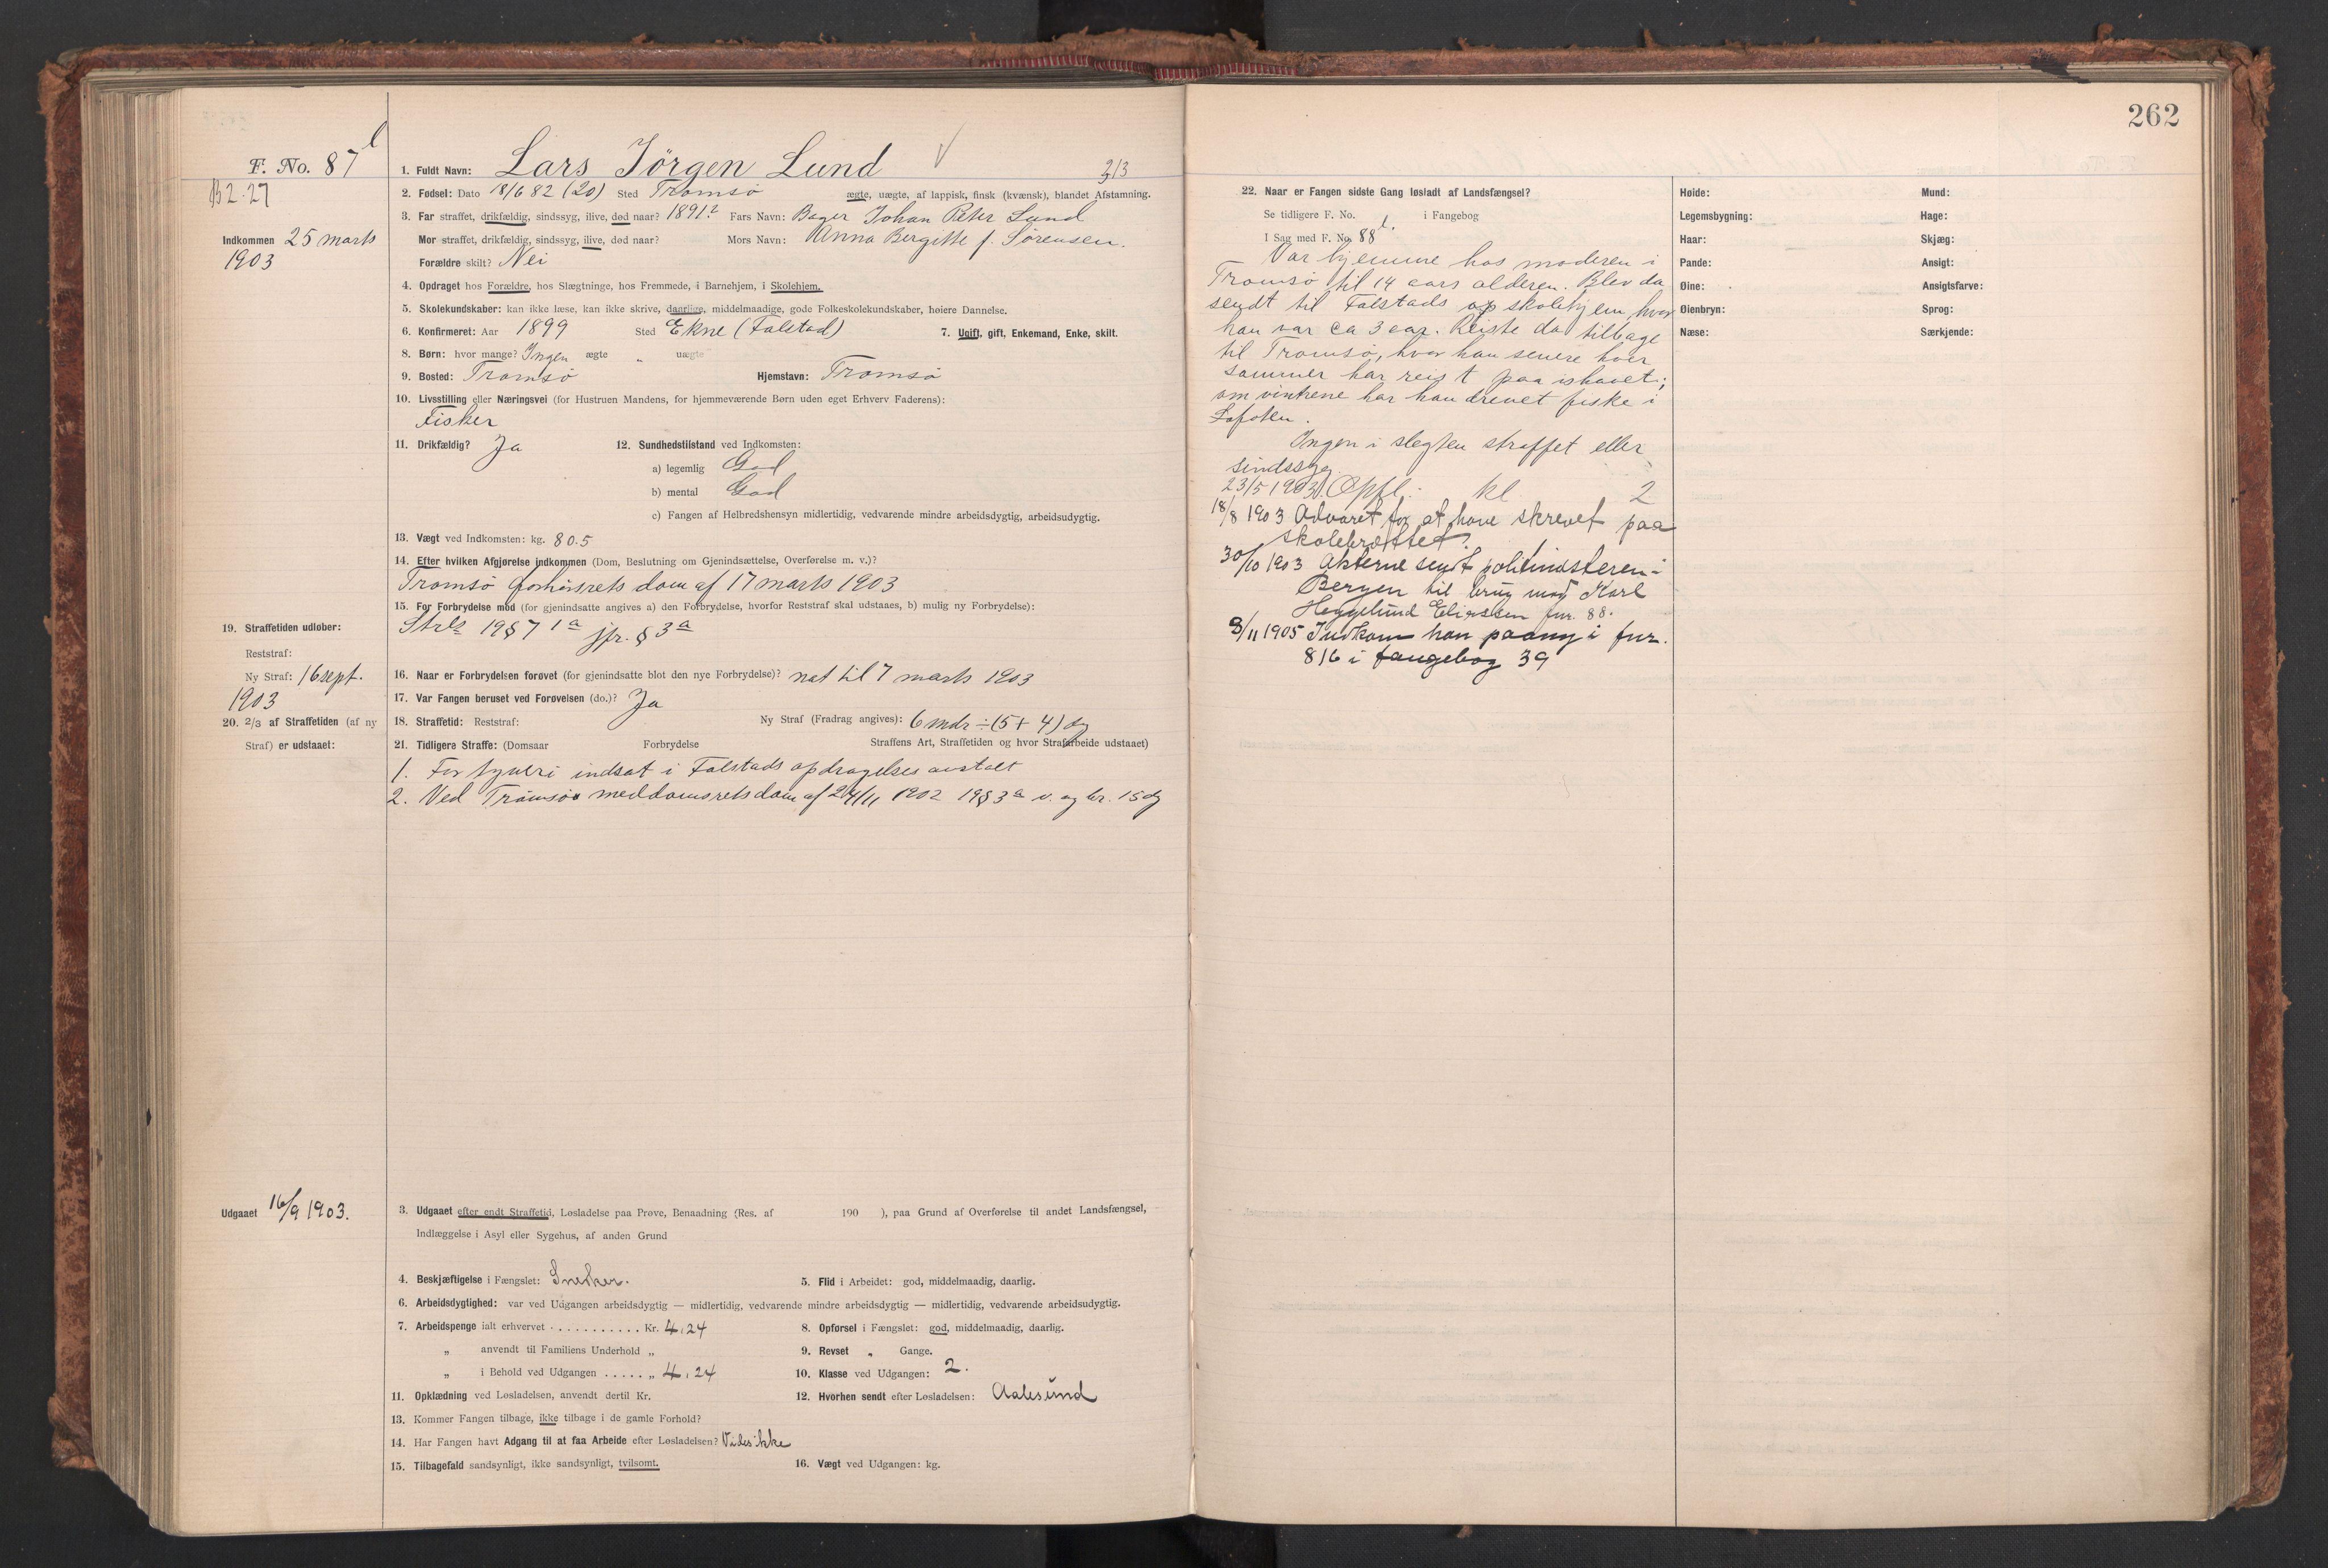 262
F. No. 87 l
B2.27
Indkommen 25 marts
1903
19. Straffetiden udløber:
Reststraf:
Ny Straf: 16 sept.
1903
20. 2/3 af Straffetiden (af ny
Straf) er udstaaet:
Udgaaet 16/9 1903.
1. Fuldt Navn: Lars Jörgen Lund
313
2. Fødsel: Dato 18/6 82 (20) Sted Tromsö ægte, uægte, af lappisk, finsk (kvænsk), blandet Afstamning.
3. Far straffet, drikfældig, sindssyg, ilive, død naar? 1891? Fars Navn: Bager Johan Peter Lund
Mor straffet, drikfældig, sindssyg, ilive, død naar? Mors Navn: Anna Bergitte f. Sörensen.
Forældre skilt? Nei
4. Opdraget hos Forældre, hos Slægtninge, hos Fremmede, i Barnehjem, i Skolehjem.
5. Skolekundskaber: kan ikke læse, kan ikke skrive, daarlige, middelmaadige, gode Folkeskolekundskaber, høiere Dannelse.
6. Konfirmeret: Aar 1899 Sted Ekne (Falstad) 7. Ugift, gift, Enkemand, Enke, skilt.
8. Børn: hvor mange? Ingen ægte „ uægte
9. Bosted: Tromsö Hjemstavn: Tromsö
10. Livsstilling eller Næringsvei (for Hustruen Mandens, for hjemmeværende Børn uden eget Erhverv Faderens):
Fisker
11. Drikfældig? Ja 12. Sundhedstilstand ved Indkomsten:
a) legemlig God
b) mental God
c) Fangen af Helbredshensyn midlertidig, vedvarende mindre arbeidsdygtig, arbeidsudygtig.
13. Vægt ved Indkomsten: kg. 80.5
14. Efter hvilken Afgjørelse indkommen (Dom, Beslutning om Gjenindsættelse, Overførelse m. v.)?
Tromsö forhörsrets dom af 17 marts 1903
15. For Forbrydelse mod (for gjenindsatte angives a) den Forbrydelse, hvorfor Reststraf skal udstaaes, b) mulig ny Forbrydelse):
Strlz 19 § 7 1a jfr. § 3a
16. Naar er Forbrydelsen forøvet (for gjenindsatte blot den nye Forbrydelse)? nat til 7 marts 1903
17. Var Fangen beruset ved Forøvelsen (do.)? Ja
18. Straffetid: Reststraf: Ny Straf (Fradrag angives): 6 mdr ÷ (5 + 4) dg
21. Tidligere Straffe: (Domsaar Forbrydelse Straffens Art, Straffetiden og hvor Strafarbeide udstaaet)
1. For tyveri indsat i Falstads opdragelses anstalt
2. Ved Tromsö meddomsrets dom af 24/11 1902 19 § 3a v. og br. 15 dg
3. Udgaaet efter endt Straffetid, Løsladelse paa Prøve, Benaadning (Res. af 190 ), paa Grund af Overførelse til andet Landsfængsel,
Indlæggelse i Asyl eller Sygehus, af anden Grund
4. Beskjæftigelse i Fængslet: Snedker. 5. Flid i Arbeidet: god, middelmaadig, daarlig.
6. Arbeidsdygtighed: var ved Udgangen arbeidsdygtig — midlertidig, vedvarende mindre arbeidsdygtig — midlertidig, vedvarende arbeidsudygtig.
7. Arbeidspenge ialt erhvervet . . . . . . . . . . . Kr. 4,24 8. Opførsel i Fængslet: god, middelmaadig, daarlig.
„ anvendt til Familiens Underhold „ 9. Revset „ Gange.
„ i Behold ved Udgangen . . . . . „ 4,24 10. Klasse ved Udgangen: 2.
11. Opklædning ved Løsladelsen, anvendt dertil Kr. 12. Hvorhen sendt efter Løsladelsen: Aalesund
13. Kommer Fangen tilbage, ikke tilbage i de gamle Forhold?
14. Har Fangen havt Adgang til at faa Arbeide efter Løsladelsen? Vides ikke
15. Tilbagefald sandsynligt, ikke sandsynligt, tvilsomt. 16. Vægt ved Udgangen: kg.
22. Naar er Fangen sidste Gang løsladt af Landsfængsel?
Se tidligere F. No. i Fangebog
I Sag med F. No. 88 l.
Var hjemme hos moderen i
Tromsö til 14 aars alderen. Blev da
sendt til Falstads skolehjem, hvor
han var ca 3 aar. Reiste da tilbage
til Tromsö, hvor han senere hver
sommer har reist paa ishavet;
om vintrene har han drevet fiske i
Lofoten.
Ingen i slegten straffet eller
sindssyg.
23/5 1903. Opfl. kl 2
18/8 1903 Advaret for at have skrevet paa
skolebrættet.
30/10 1903 Akterne sendt politimesteren i
Bergen til brug mod Karl
Heggelund Eliassen fnr. 88.
8/11 1905 Indkom han paany i fnr.
816 i fangebog 39
Høide: Mund:
Legemsbygning: Hage:
Haar: Skjæg:
Pande: Ansigt:
Øine: Ansigtsfarve:
Øienbryn: Sprog:
Næse: Særkjende: